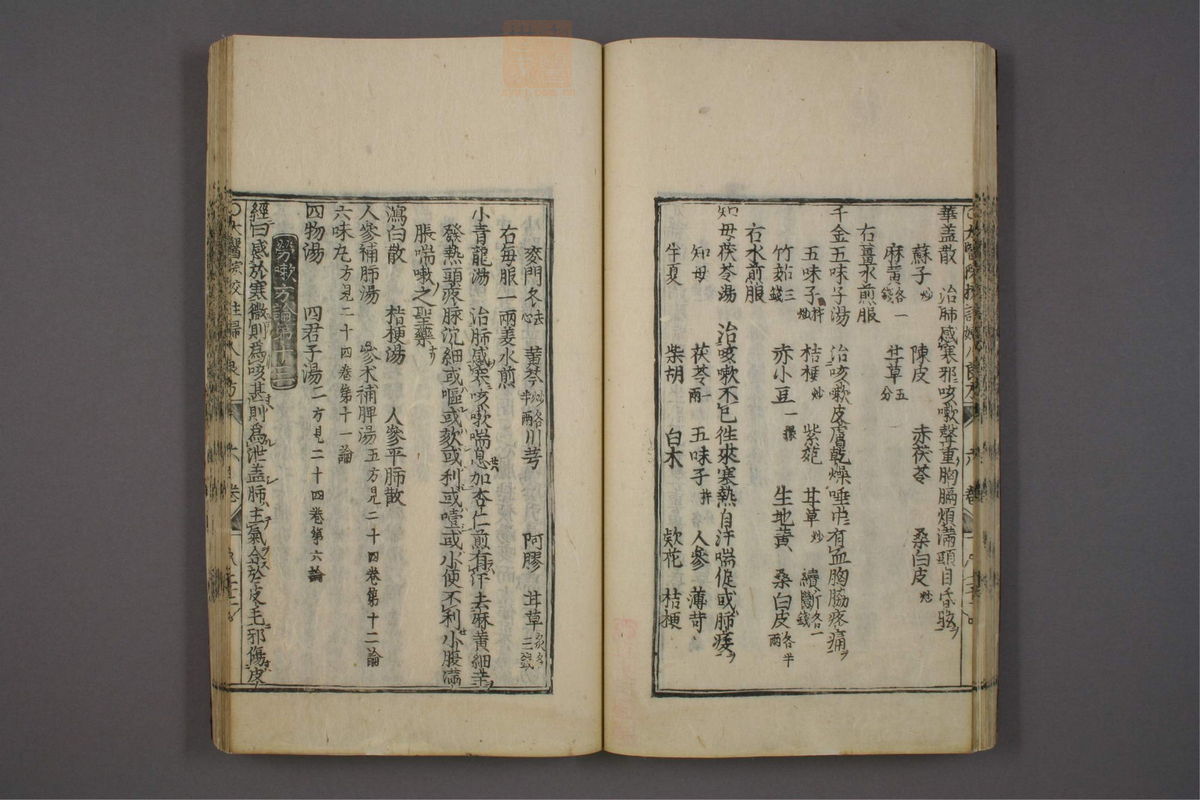 華盖散 治肺感寒邪咳嗽聲重胸膈煩滿頭目昏眩
蘇子炒 陳皮 赤茯苓 桑白皮炒
麻黄各一錢 甘草五分
右薑水煎服
千金五味子湯 治咳嗽皮膚乾燥唾中有血胸脇疼痛
五味子杵炒 桔梗炒 紫菀 甘草炒 續斷各一錢
竹茹三錢 赤小豆一撮 生地黄 桑白皮各半兩
右水煎服
知母茯苓湯 治咳嗽不已徃來寒熱自汗喘促或肺痿
知母 茯苓一兩 五味子杵 人參 薄苛
半夏 柴胡 白朮 欵花 桔梗
麥門冬去心 黄芩炒各半兩 川芎 阿膠 甘草炙各三錢
右每服一兩姜水煎
小青龍湯 治肺感寒咳嗽喘息加杏仁煎有汗去麻黄細辛
發熱頭疼脉沉細或嘔或欬或利或噎或小便不利小腹滿
脹喘嗽之聖藥
瀉白散 桔梗湯 人參平肺散
人參補肺湯 參术補脾湯五方見二十四卷第十二論
六味丸方見二十四卷第十一論
四物湯 四君子湯二方見二十四卷第六論
勞嗽方論第十三
經曰感於寒微則爲咳甚則爲泄盖肺主氣合於皮毛邪傷皮